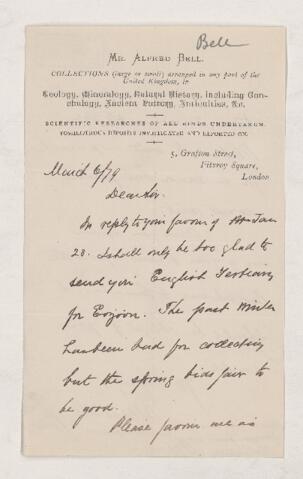 Bell
MR. ALFRED BELL.
COLLECTIONS (large or small) arranged in any part of the
United Kingdom, in
Geology, Mineralogy, Natural History, including Con-
chology, Ancient Pottery, Antiquities, &c.
SCIENTIFIC RESEARCHES OF ALL KINDS UNDERTAKEN.
FOSSILIFEROUS DEPOSITS INVESTIGATED AND REPORTED ON.
5, Grafton Street,
Fitzroy Square,
London
March 6/79
Dear Sir.
In reply to your favour of Jan
28. I shall only be too glad to
send you English Tertiary
for Eozoon. The past winter
has been bad for collecting
but the spring bids fair to
be good.
Please favour me as